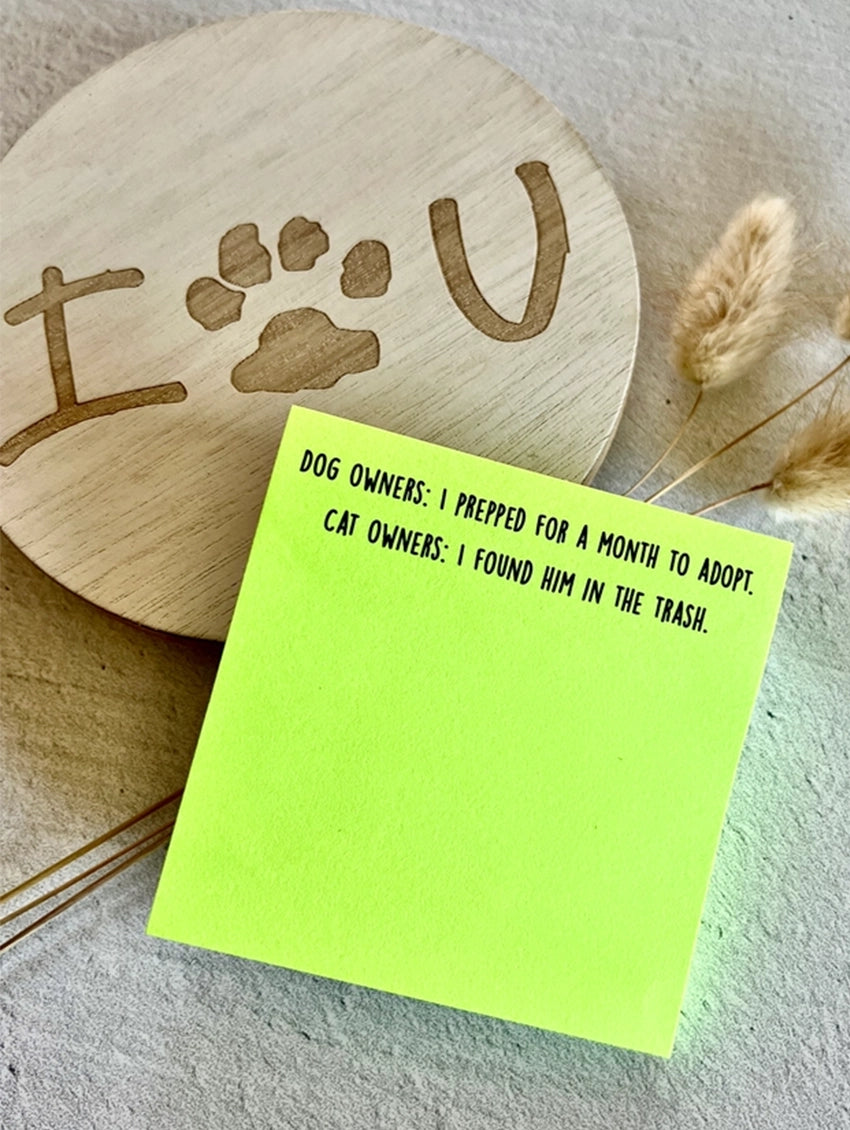 I U
DOG OWNERS: I PREPPED FOR A MONTH TO ADOPT.
CAT OWNERS: I FOUND HIM IN THE TRASH.